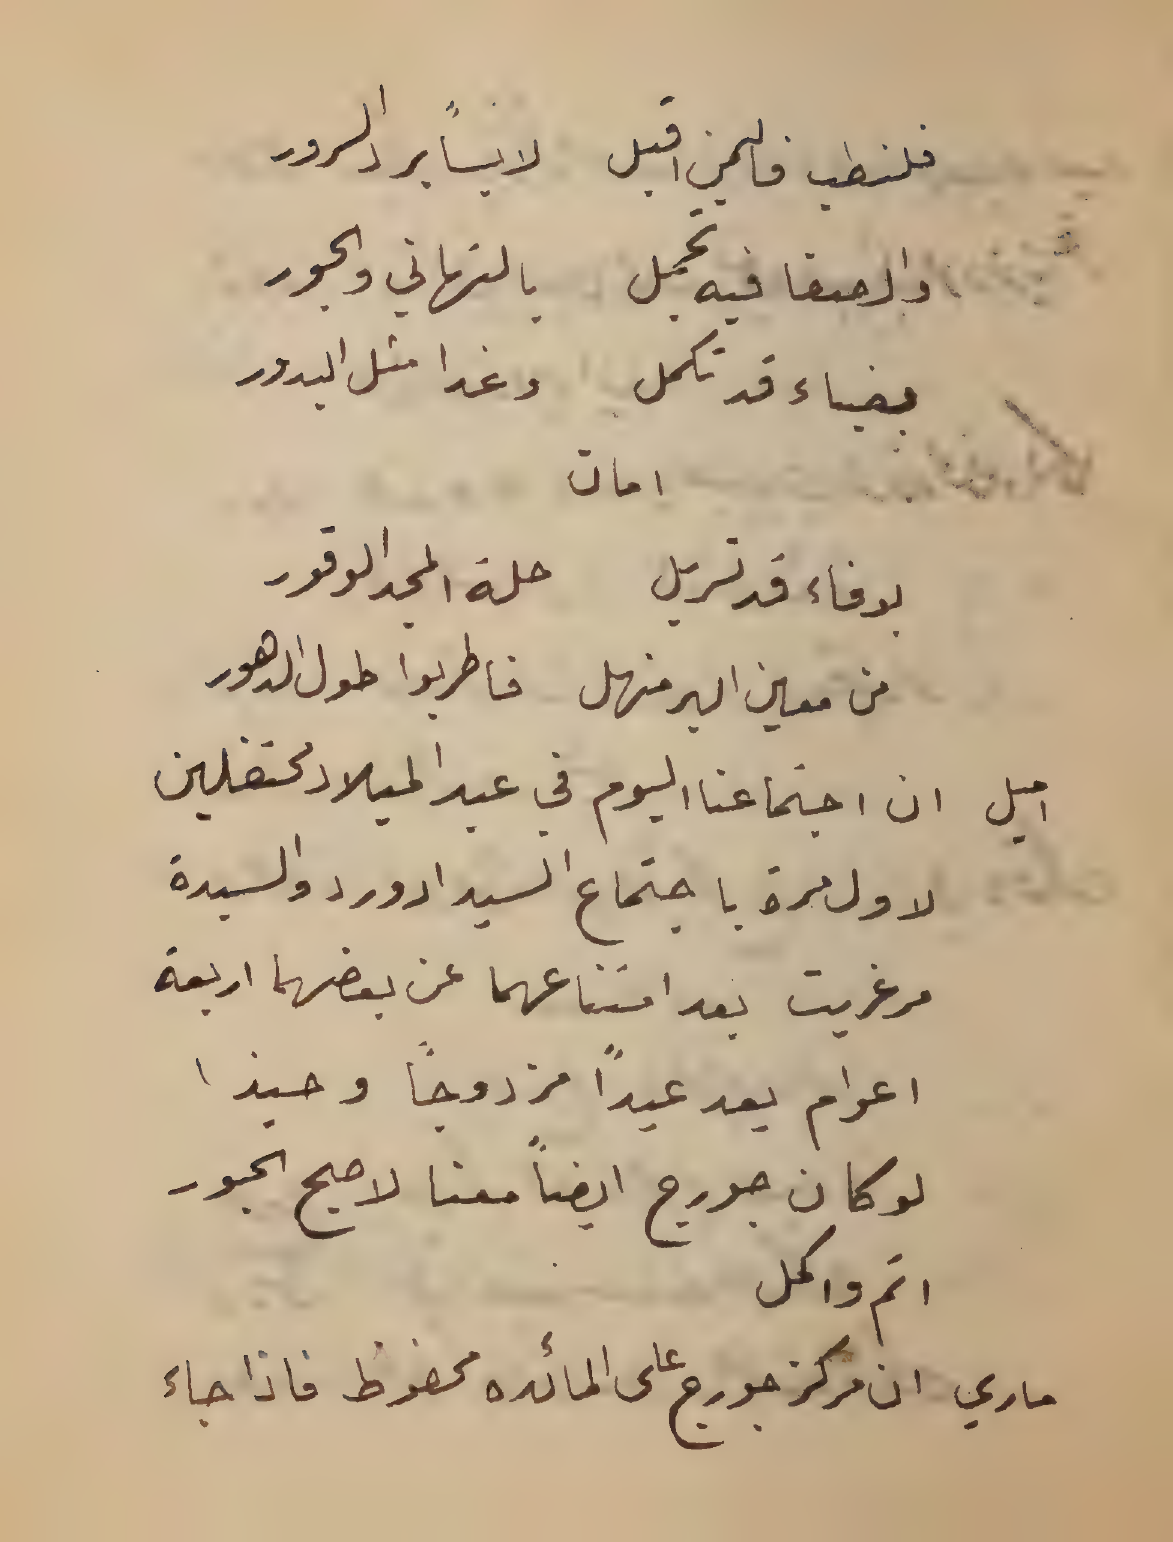 فلنطب فاليمن اقبل لابساً برد السرور
والصفا فيه تجمل بالتهاني والحبور
بضياء قد تكمل وغدا مثل البدور
امان
بوفاء قد تسربل حلة المجد الوقور
من معين البر منهل فاطربوا طول الدهور
اميل ان اجتماعنا اليوم في عيد الميلاد محتفلين
لاول مرة باجتماع السيد ادورد والسيدة
مرغريت بعد امتناعهما عن بعضهما اربعة
اعوام يعد عيداً مزدوجاً وحبذا
لو كان جورج ايضاً معنا لاصبح الحبور
اتم واكمل
ماري ان مركز جورج على المائده محفوظ فاذا جاء